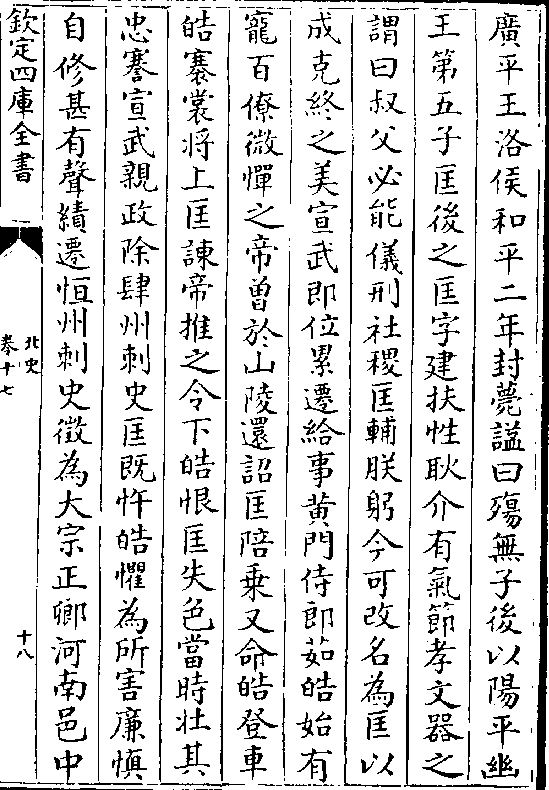 廣平王洛侯和平二年封薨諡曰殤無子後以陽平幽
王第五子匡後之匡字建扶性耿介有氣節孝文器之
謂曰叔父必能儀刑社稷匡輔朕躬今可改名為匡以
成克終之美宣武即位累遷給事黃門侍郎茹皓始有
寵百僚微憚之帝曾於山陵還詔匡陪乗又命皓登車
皓褰裳将上匡諫帝推之令下皓恨匡失色當時壯其
忠謇宣武親政除肆州刺史匡既忤皓懼為所害廉慎
自修甚有聲績遷恒州刺史徵為大宗正卿河南邑中
欽定四庫全書
北史
卷十七
十八